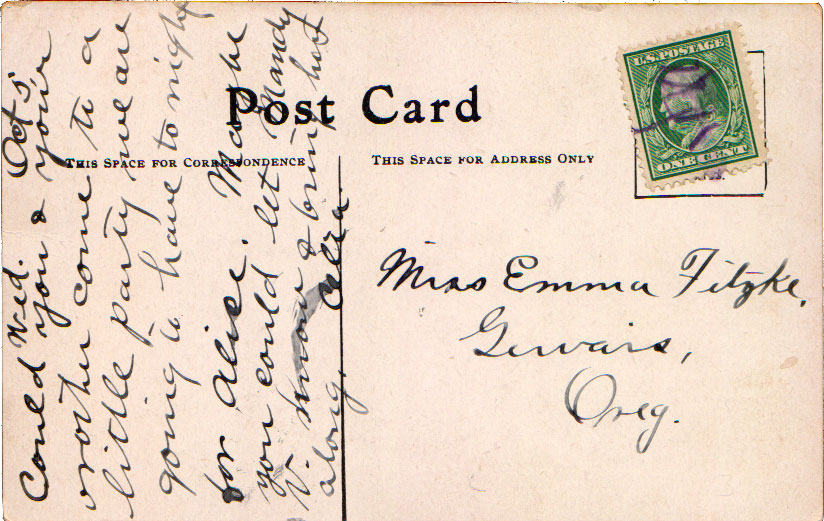 Post Card
THIS SPACE FOR CORRESPONDENCE
THIS SPACE FOR ADDRESS ONLY
U.S. POSTAGE
ONE CENT
Wed. Oct 5
Could you & your
brother come to a
little party we are
going to have to night
for Alice. Maybe
you could let Mandy
V. know & bring her
along.
Miss Emma Fitzke,
Gervais,
Oreg.